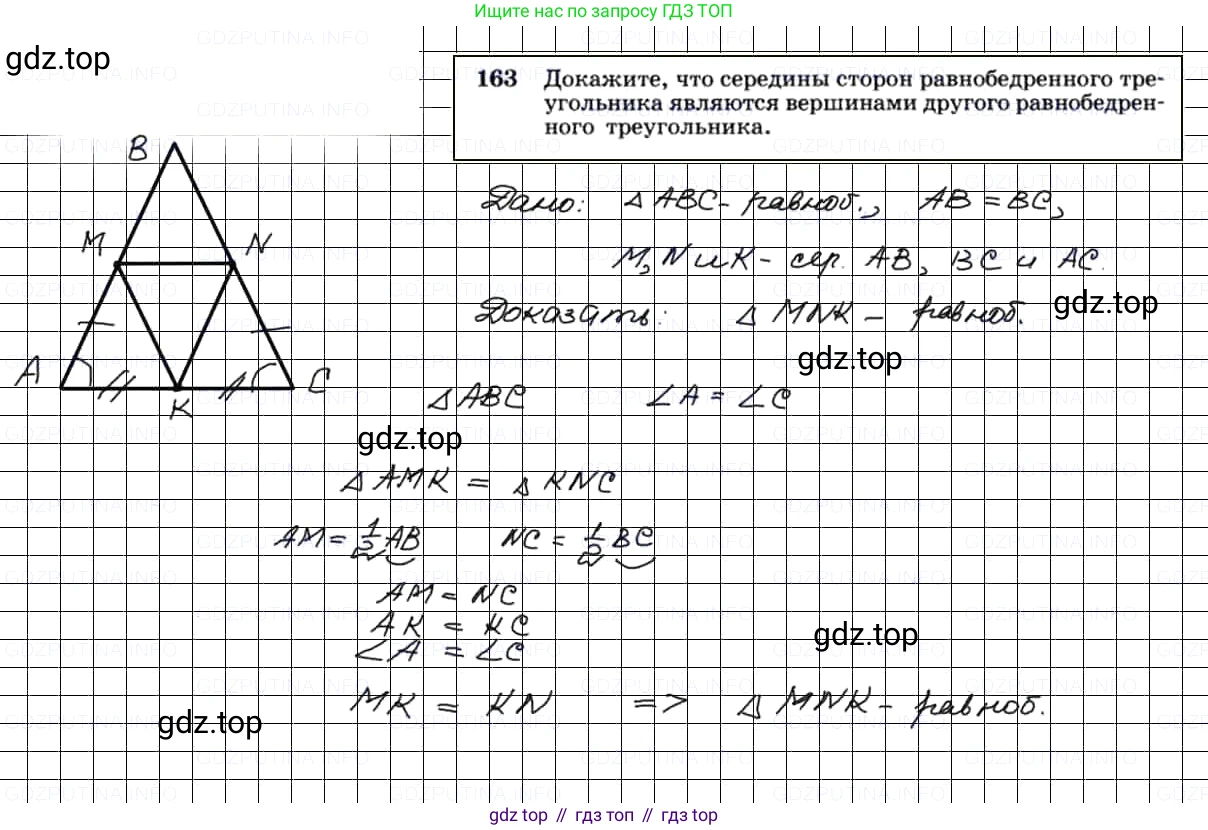 Ищите нас по запросу ГДЗ ТОП
gdz.top
163 Докажите, что середины сторон равнобедренного тре-
угольника являются вершинами другого равнобедрен-
ного треугольника.
B
M N
A K C
Дано: △ ABC - равноб., AB = BC,
M, N и K - сер. AB, BC и AC.
Доказать: △ MNK - равноб.
gdz.top
gdz.top
△ ABC ∠A = ∠C
gdz.top
△ AMK = △ KNC
AM = 1/2 AB NC = 1/2 BC
AM = NC
AK = KC
∠A = ∠C
gdz.top
MK = KN => △ MNK - равноб.
gdz.top
gdz.top // гдз топ // gdz top